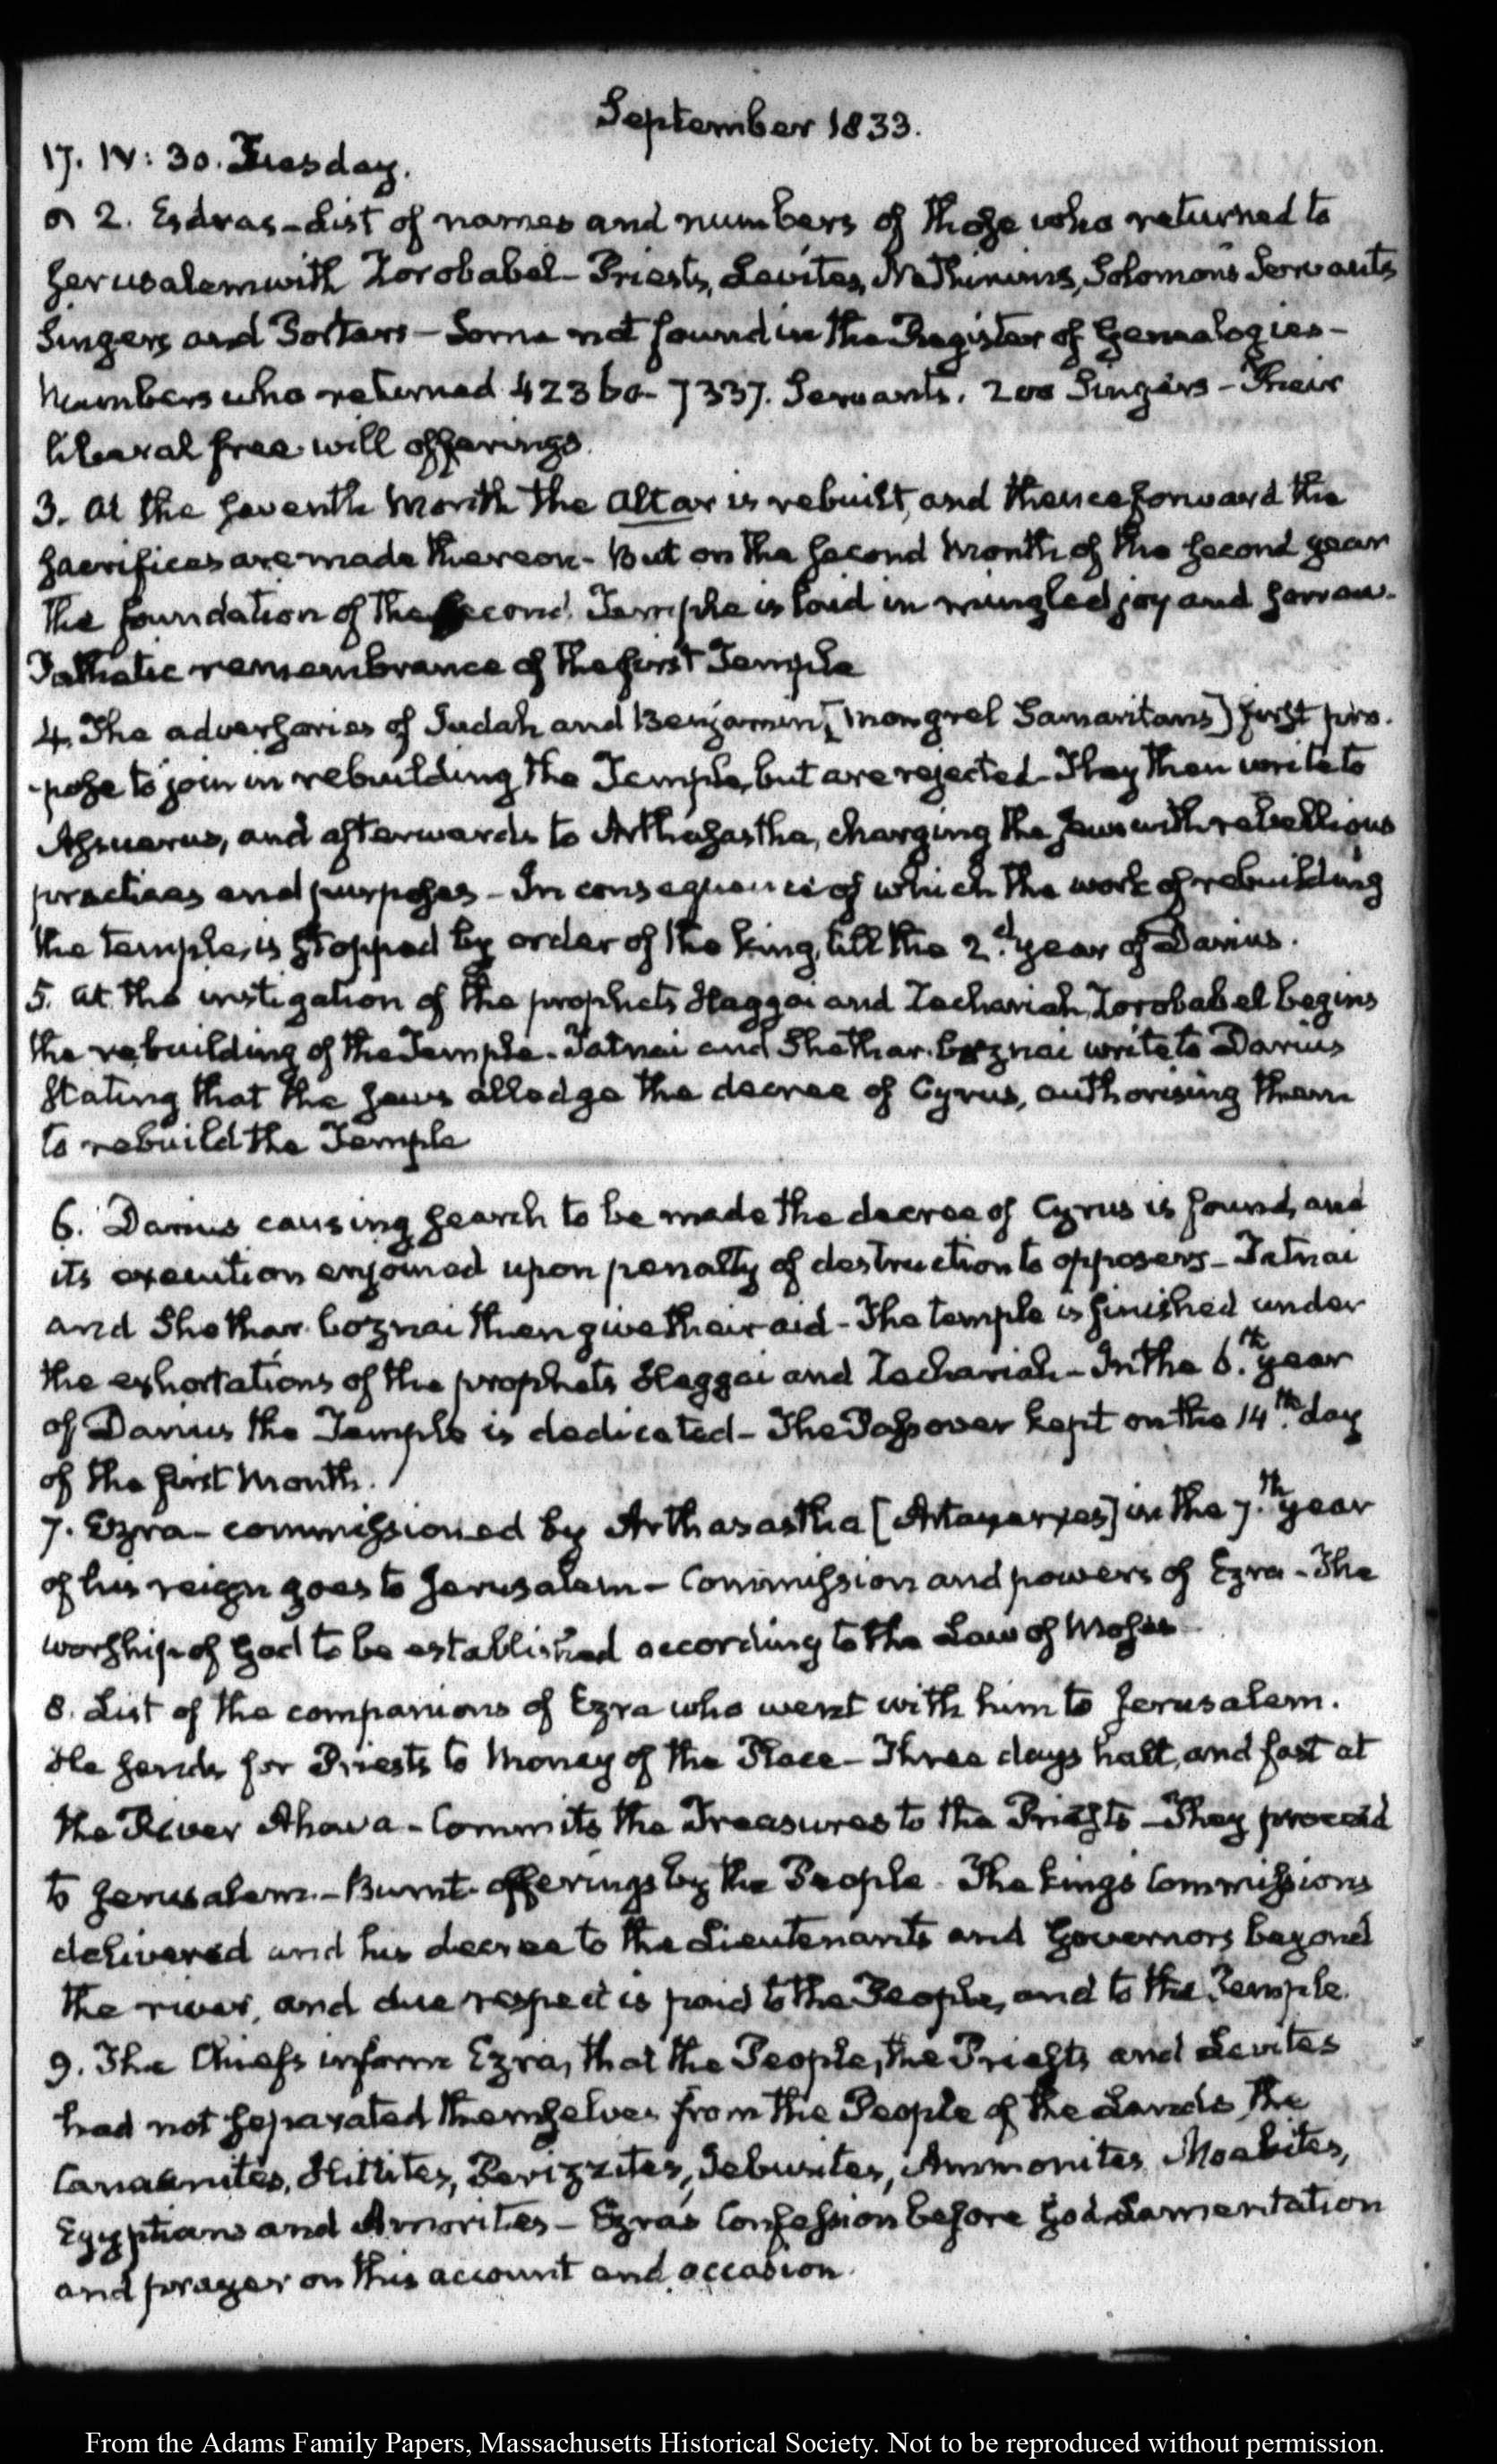 September 1833.
17. IV: 30. Tuesday.
2. Esdras – List of names and numbers of those who returned to
Jerusalem with Zorobabel – Priests, Levites, Nethinims, Solomon's Servants
Singers and Porters – Some not found in the Register of Genealogies –
Numbers who returned 42360 – 7337. Servants. 200 Singers – Their
liberal free-will offerings.
3. At the seventh Month the Altar is rebuilt, and thenceforward the
sacrifices are made thereon – But on the second Month of the second year
the foundation of the second Temple is laid in mingled joy and sorrow.
Pathetic remembrance of the first Temple
4. The adversaries of Judah and Benjamin, [mongrel Samaritans] first pro-
-pose to join in rebuilding the Temple, but are rejected – They then write to
Assuerus, and afterwards to Arthasastha, charging the Jews with rebellious
practices and purposes – In consequence of which the work of rebuilding
the temple, is stopped by order of the king, till the 2.d year of Darius.
5. At the instigation of the prophets Haggai and Zechariah, Zorobabel begins
the rebuilding of the Temple – Tatnai and Shethar-boznai write to Darius
stating that the Jews alledge the decree of Cyrus, authorising them
to rebuild the Temple
6. Darius causing search to be made the decree of Cyrus is found, and
its execution enjoined upon penalty of destruction to opposers – Tatnai
and Shethar-boznai then give their aid – The temple is finished under
the exhortations of the prophets Haggai and Zechariah – In the 6.th year
of Darius the Temple is dedicated – The Passover kept on the 14.th day
of the first Month.
7. Ezra – commissioned by Arthasastha [Artaxerxes] in the 7.th year
of his reign goes to Jerusalem – Commission and powers of Ezra – The
worship of God to be established according to the Law of Moses –
8. List of the companions of Ezra who went with him to Jerusalem.
He sends for Priests to Money of the Place – Three days halt, and fast at
the River Ahava – Commits the Treasures to the Priests – They proceed
to Jerusalem. – Burnt-offerings by the People – The kings Commissions
delivered and his decree to the Lieutenants and Governors beyond
the river, and due respect is paid to the People, and to the Temple.
9. The Chiefs inform Ezra, that the People, the Priests and Levites
had not separated themselves from the People of the Lands, the
Canaanites, Hittites, Perizzites, Jebusites, Ammonites, Moabites,
Egyptians and Amorites – Ezra's Confession before God, Lamentation
and prayer on this account and occasion.
From the Adams Family Papers, Massachusetts Historical Society. Not to be reproduced without permission.